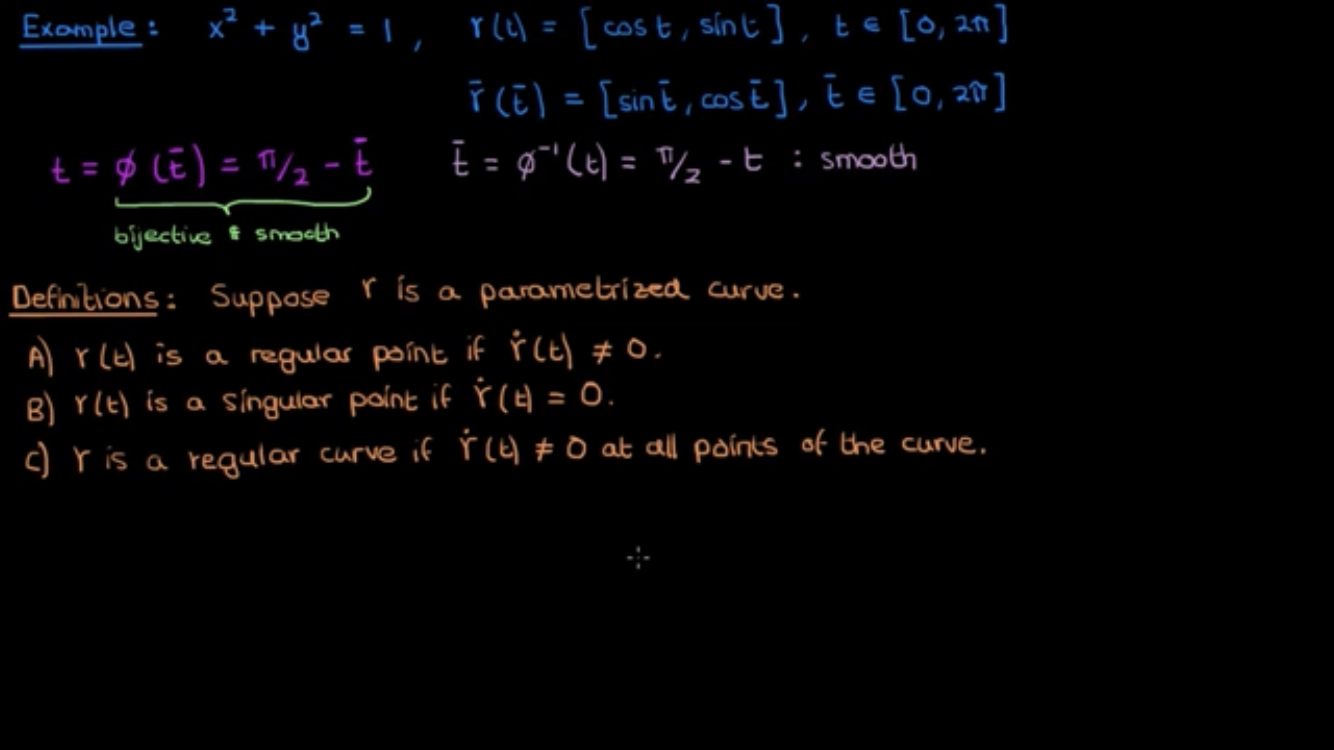 Example: x² + y² = 1, r(t) = [cos t, sin t], t ∈ [0, 2π]
r̄(t̄) = [sin t̄, cos t̄], t̄ ∈ [0, 2π]
t = φ(t̄) = π/2 - t̄ t̄ = φ⁻¹(t) = π/2 - t : smooth
bijective & smooth
Definitions: Suppose r is a parametrized curve.
A) r(t) is a regular point if ṙ(t) ≠ 0.
B) r(t) is a singular point if ṙ(t) = 0.
C) r is a regular curve if ṙ(t) ≠ 0 at all points of the curve.